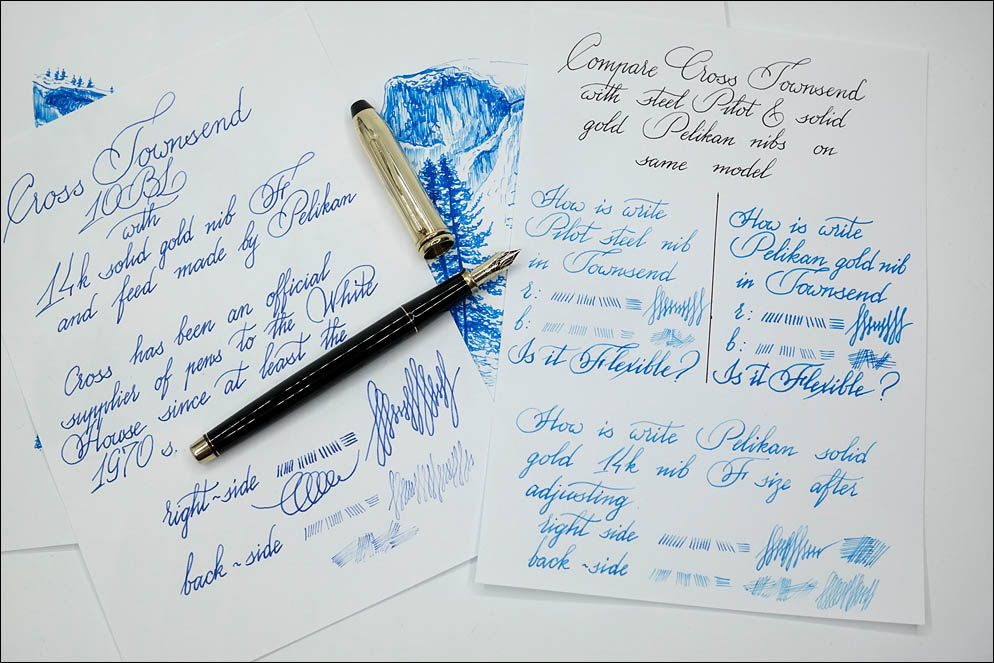 Cross Townsend
10BL
with
14k solid gold nib F
and feed made by Pelikan
Cross has been an official
supplier of pens to the White
House since at least the
1970 s.
right~side
back~side
Compare Cross Townsend
with steel Pilot & solid
gold Pelikan nibs on
same model
How is write
Pilot steel nib
in Townsend
r:
b:
Is it Flexible?
How is write
Pelikan gold nib
in Townsend
r:
b:
Is it Flexible?
How is write Pelikan solid
gold 14k nib F size after
adjusting.
right side
back~side